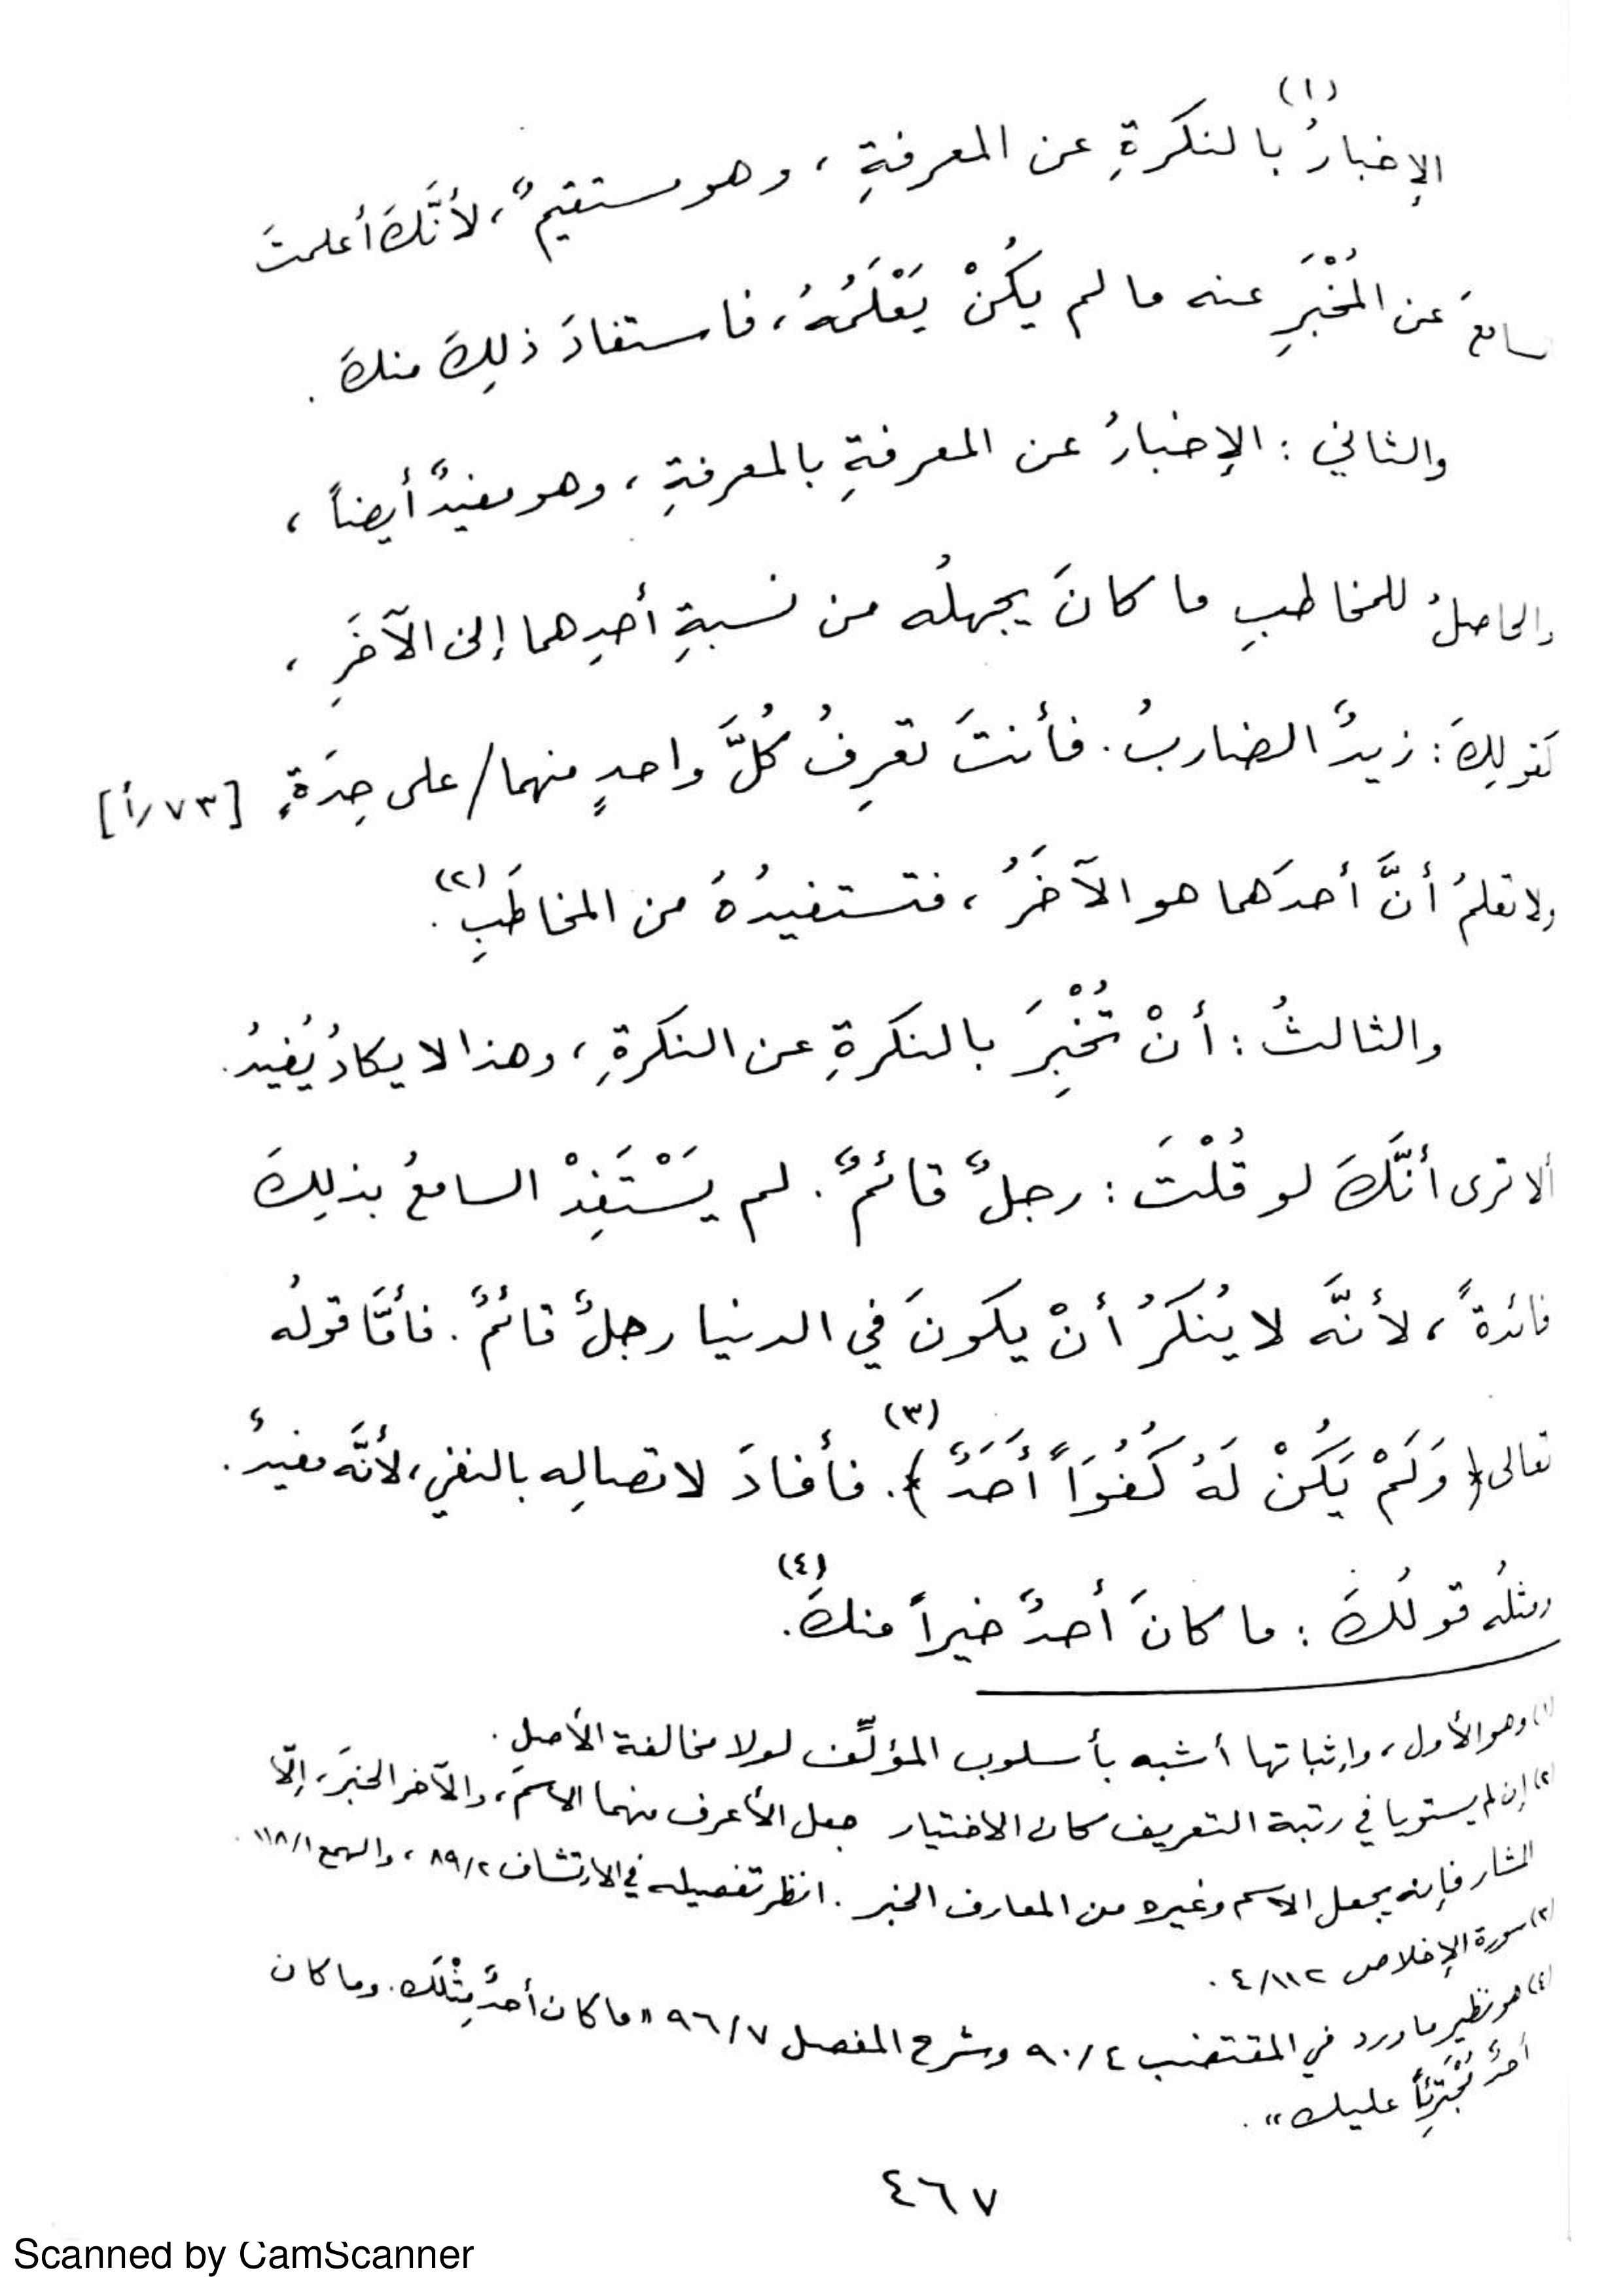 (١)
الإخبارُ بالنكرةِ عن المعرفةِ ، وهو مستقيمٌ ، لأنَّكَ أعلمتَ
سامعَ عن المُخْبَرِ عنه ما لم يكُنْ يَعْلَمُهُ ، فاستفادَ ذلِكَ منكَ .
والثاني : الإخبارُ عن المعرفةِ بالمعرفةِ ، وهو مفيدٌ أيضاً ،
والحاصلُ للمخاطبِ ما كانَ يجهلُه من نسبةِ أحدِهما إلى الآخَرِ ،
كقولِكَ : زيدٌ الضاربُ . فأنتَ تعرِفُ كُلَّ واحدٍ منهما / على حِدَةٍ [٧٣/أ]
ولا تعلمُ أنَّ أحدَهما هو الآخَرُ ، فتستفيدُهُ من المخاطَبِ (٢) .
والثالثُ : أنْ تُخْبِرَ بالنكرةِ عن النكرةِ ، وهذا لا يكادُ يُفيدُ .
ألا ترى أنَّكَ لو قُلْتَ : رجلٌ قائمٌ . لم يَسْتَفِدْ السامعُ بذلِكَ
فائدةً ، لأنَّه لا يُنكَرُ أنْ يكونَ في الدنيا رجلٌ قائمٌ . فأمَّا قولُه
تعالى ﴿ وَلَمْ يَكُنْ لَهُ كُفُوَاً أَحَدٌ ﴾ (٣) . فأفادَ لاتصالِه بالنفي ، لأنَّه مفيدٌ .
ومثلُه قولُكَ : ما كانَ أحدٌ خيراً منكَ (٤) .
(١) وهو الأول ، وإثباتها أشبه بأسلوب المؤلِّف لولا مخالفة الأصل .
(٢) إن لم يستويا في رتبة التعريف كان الاختيار جعل الأعرف منهما الاسمَ ، والآخر الخبَرَ ، إلّا
المشار فإنه يجعل الاسم وغيره من المعارف الخبر . انظر تفصيله في الارتشاف ٨٩/٢ ، والهمع ١١٨/١ .
(٣) سورة الإخلاص ٤/١١٢ .
(٤) هو نظير ما ورد في المقتضب ٩٠/٤ وشرح المفصل ٩٦/٧ " ما كان أحدٌ مِثْلَك . وما كان
أحدٌ مُجْتَرِئاً عليك " .
٤٦٧
Scanned by CamScanner